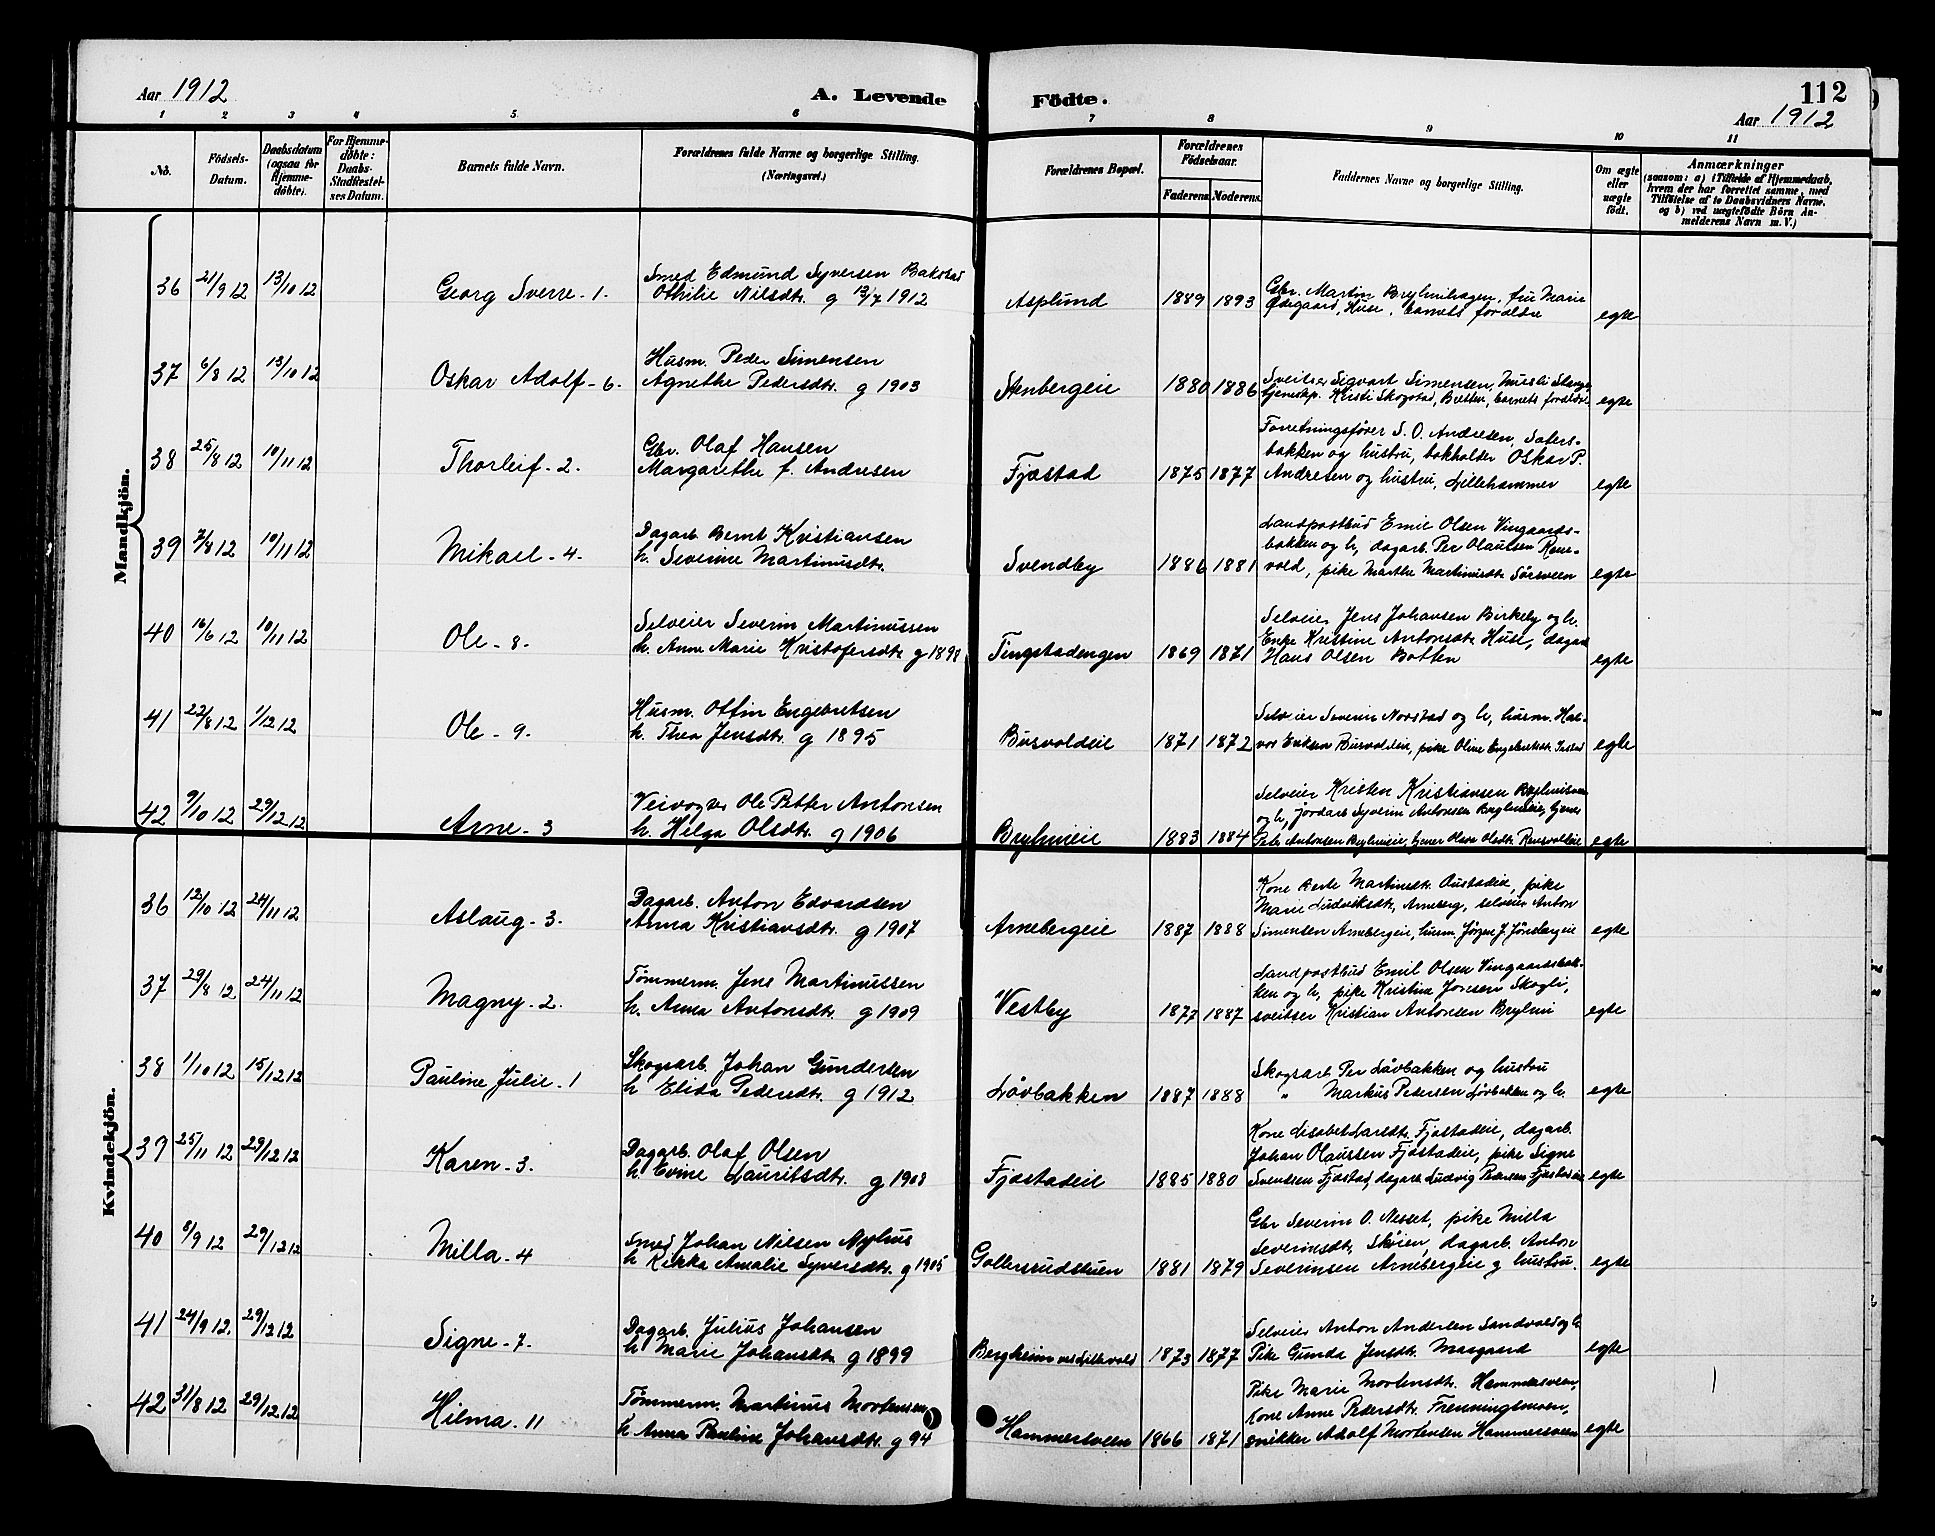 Aar 1912
A. Levende Födte.
112
Aar 1912
1 2 3 4 5 6 7 8 9 10 11
No.
Födsels-
Datum.
Daabsdatum
(ogsaa for
Hjemme-
döbte).
For Hjemme-
döbte:
Daabs-
Stadfestel-
ses Datum.
Barnets fulde Navn.
Forældrenes fulde Navne og borgerlige Stilling.
(Næringsvei.)
Forældrenes Bopæl.
Forældrenes
Födselsaar.
Faderens. Moderens.
Faddernes Navne og borgerlige Stilling.
Om ægte
eller
uægte
födt.
Anmærkninger
(saasom: a) i Tilfælde af Hjemmedaab,
hvem der har forrettet samme, med
Tilföielse af to Daabsvidners Navne,
og b) ved uægtefödte Börn An-
melderens Navn m. V.)
Mandkjön.
36 21/9 12 13/10 12 Georg Sverre - 1.
Smed Edmund Syversen Bakstad
Othilie Nilsdtr. g 13/7 1912
Asplund 1889 1893
Gbr. Martin Brylhihagen, fru Marie
Ødegaard, Huse, barnets forældre
egte
37 6/8 12 13/10 12 Oskar Adolf - 6.
Husm. Peder Simensen
Agnethe Pedersdtr. g 1903
Stenbergeie 1880 1886
Sveitser Sigvart Simensen, Stange,
tjenestep. Kristi Skogstad, Bretten, barnets forældre
egte
38 25/8 12 10/11 12 Thorleif - 2.
Gbr. Olaf Hansen
Margarethe f. Andresen
Fjæstad 1875 1877
Forretningsfører S. O. Andresen, Sæters-
bakken og hustru, bokholder Oskar P.
Andresen og hustru, Lillehammer
egte
39 7/8 12 10/11 12 Mikael - 4.
Dagarb. Bernt Kristiansen
h. Severine Martinusdtr.
Svendby 1886 1881
Landpostbud Emil Olsen Vingaards-
bakken og h, dagarb. Per Olausen Rone-
vold, pike Marthe Martinusdtr. Sørsveen
egte
40 16/6 12 10/11 12 Ole - 8.
Selveier Severin Martinussen
h. Anne Marie Kristofersdtr g 1898
Tingstadengen 1869 1871
Selveier Jens Johansen Birkeby og h.
Enke Kristine Antonsdtr Huse, dagarb
Hans Olsen Botten
egte
41 22/8 12 1/12 12 Ole - 9.
Husm. Otfin Engebretsen
h. Thea Jensdtr. g 1895
Busvoldeie 1871 1872
Selveier Severin Norstad og h, husm. Hal-
vor Eriksen Busvoldeie, pike Oline Engebretsdtr.
egte
42 9/10 12 29/12 12 Arne - 3
Veivogter Ole Petter Antonsen
h. Helga Olsdtr. g 1906
Brylunieie 1883 1884
Selveier Kristen Kristiansen
og h, jordarb Syverin Antonsen
Peter Antonsen Brylunieie,
egte
Kvindekjön.
36 12/10 12 24/11 12 Aslaug - 3.
Dagarb. Anton Edvardsen
Anna Kristiansdtr. g 1907
Arnebergeie 1887 1888
Kone Berte Martinsdtr. Oustadeie, pike
Marie Ludviksdtr, Arneberg, selveier Anton
Simensen Arnebergeie, husm. Jørgen J. Jønsbergeie
egte
37 29/8 12 24/11 12 Magny - 2.
Tømmerm. Jens Martinussen
h. Anna Antonsdtr. g 1909
Vestby 1877 1887
Landpostbud Emil Olsen Vingaardsbak-
ken og h, pike Kristine Jonsen Skogli,
sveitser Kristian Antonsen Bryluni
egte
38 1/10 12 15/12 12 Pauline Julie - 1
Skogsarb. Johan Gundersen
h Elida Pedersdtr. g 1912
Løvbakken 1887 1888
Skogsarb Per Løvbakken og hustru
" Markus Pedersen Løvbakken og h.
egte
39 25/11 12 29/12 12 Karen - 3.
Dagarb. Olaf Olsen
h. Evine Lauritsdtr. g 1908
Fjæstadeie 1885 1880
Kone Lisabet Larsdtr. Fjæstadeie, dagarb.
Johan Olaussen Fjæstadeie, pike Signe
Svendsen Fjæstad, dagarb Ludvig Paulsen Fjæstadeie
egte
40 8/9 12 29/12 12 Milla - 4
Smed Johan Nilsen Myhus
h Rikka Amalie Syversdtr. g 1905
Gollerrudstuen 1881 1879
Gbr Severin O. Nesset, pike Milla
Severinsdtr Skøien, dagarb. Anton
Severinsen Arnebergeie g hustru.
egte
41 24/9 12. 29/12 12 Signe - 7.
Dagarb. Julius Johansen
h Marie Johansdtr. g 1899
Bergheim ved Lillevold 1873 1877
Selveier Anton Andersen Sandvold og h
Pike Gunda Jensdtr. Morgaard
egte
42 31/8 12 29/12 12 Hilma - 11
Tømmerm. Martinus Mortensen
h Anna Pauline Johansdtr. g 94
Hammersveen 1866 1871
Pike Marie Mortensdtr. Hammersveen,
Kone Anne Pedersdtr. Frenningsmoen,
snikker Adolf Mortensen Hammersveen
egte